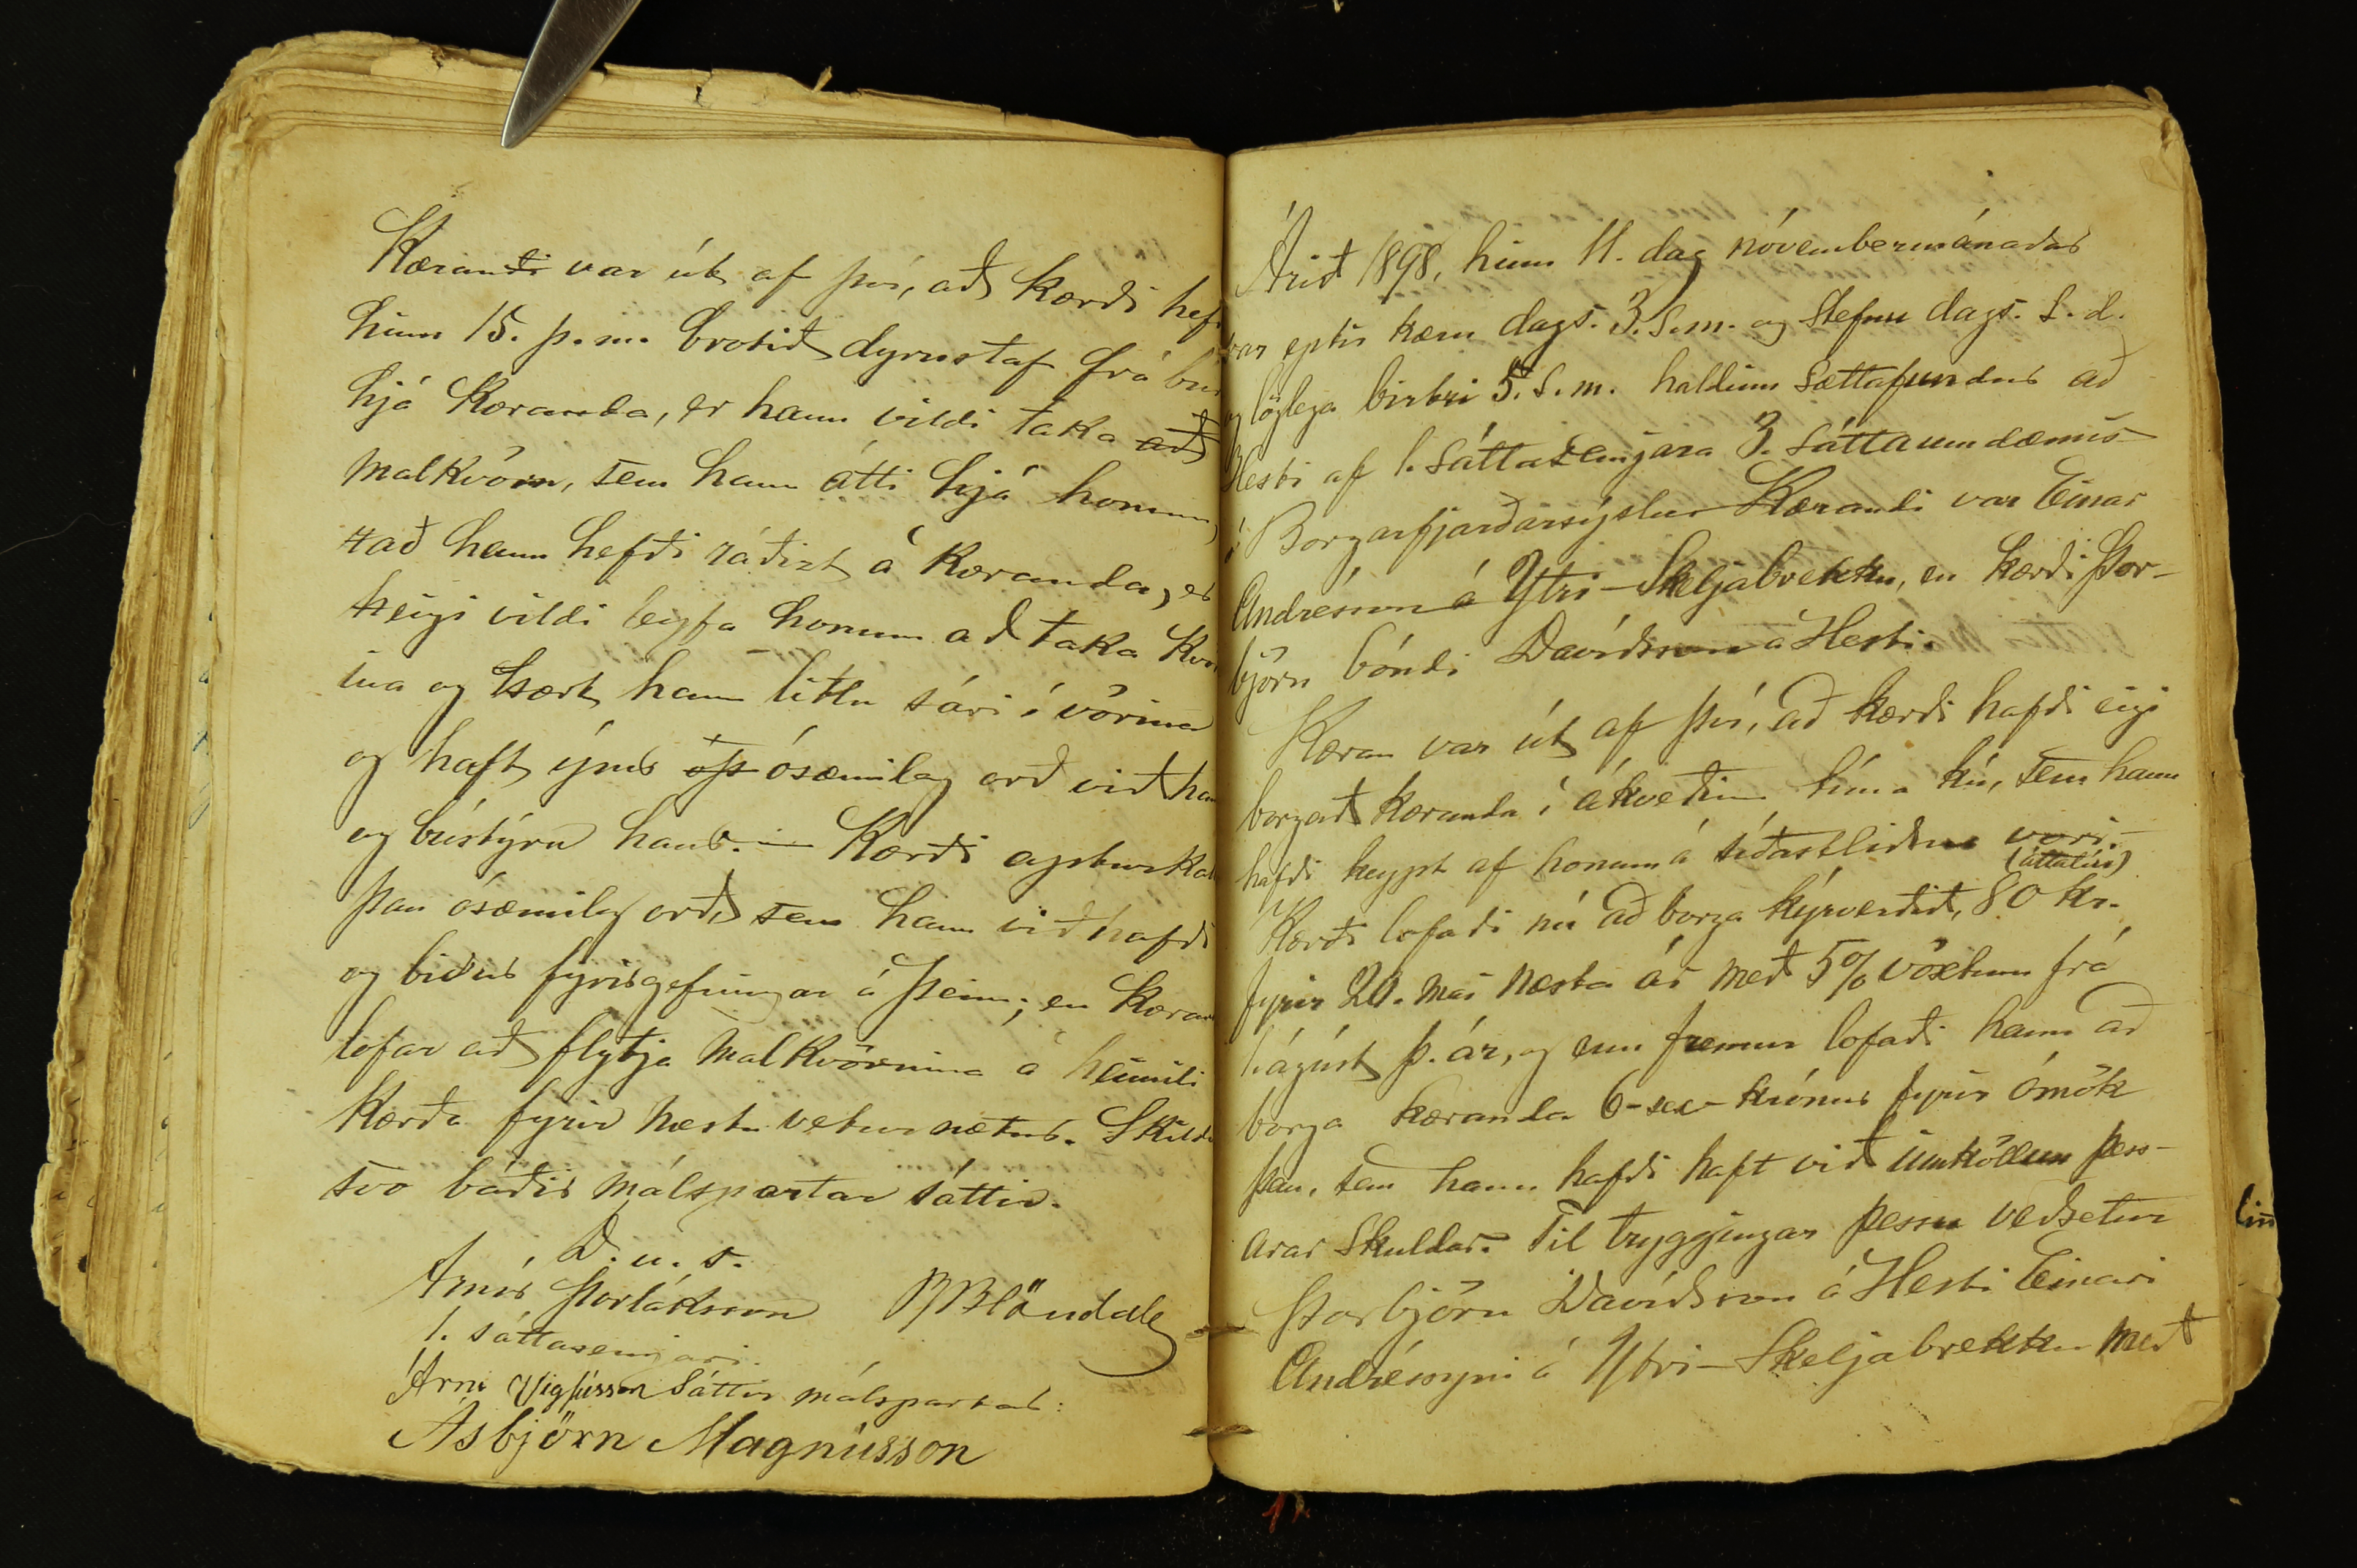 Kærandi var út af því, að kærði hefð
hinn 15. þ.m. brotið dyrustaf frá búr
hjá kæranda, er hann vildi taka að
malkvörn, sem hann átti hjá honum,
að hann hefði ráðizt á kæranda, er
eigi vildi leyfa honum að taka kvörn
ina og sært hann litlu sári í vörina
og haft ýmis ósæmileg orð við han
og bústýru hans. — Kærði apturkall
þau ósæmileg orð, sem hann við hafði
og biður fyrirgefningar á þeim; en kæran
lofar að flytja malkvörnina á heimili
kærða fyrir næstu veturnætur. Skildu
svo báðir málspartar sáttir.
D. u. s.
Arnór Þorláksson BBlöndal
1. sáttasemjari.
Árni Vigfússon Sáttir málspartar:
Ásbjörn Magnússon
Árið 1898, hinn 11. dag nóvembermánaðar
var eptir kæru dags. 3. s.m. og stefnu dags. s.d.
og löglega birtri 5. s.m. haldinn sættafundur að
Hesti af 1. sáttasemjara 3. sáttaumdæmis
í Borgarfjarðarsýslu. Kærandi var Einar
Andrésson á Ytri-Skeljabrekku, en kærði Þor-
björn bóndi Davíðsson á Hesti.
Kæran var út af því, að kærði hafði eigi
borgað kæranda í ákveðinn tíma kú, sem hann
hafði keypt af honum á síðastliðnu vori.
(áttatíu)
Kærði lofaði nú að borga kýrverðið, 80 kr.
fyrir 20. maí næsta ár með 5% vöxtum frá
1. ágúst þ. ár, og enn fremur lofaði hann að
borga kæranda 6-sex-krónur fyrir ómök
þau, sem hann hafði haft við innköllun þess-
arar skuldar. Til tryggingar þessu veðsetur
Þorbjörn Davíðsson á Hesti Einari
Andréssyni á Ytri-Skeljabrekku með